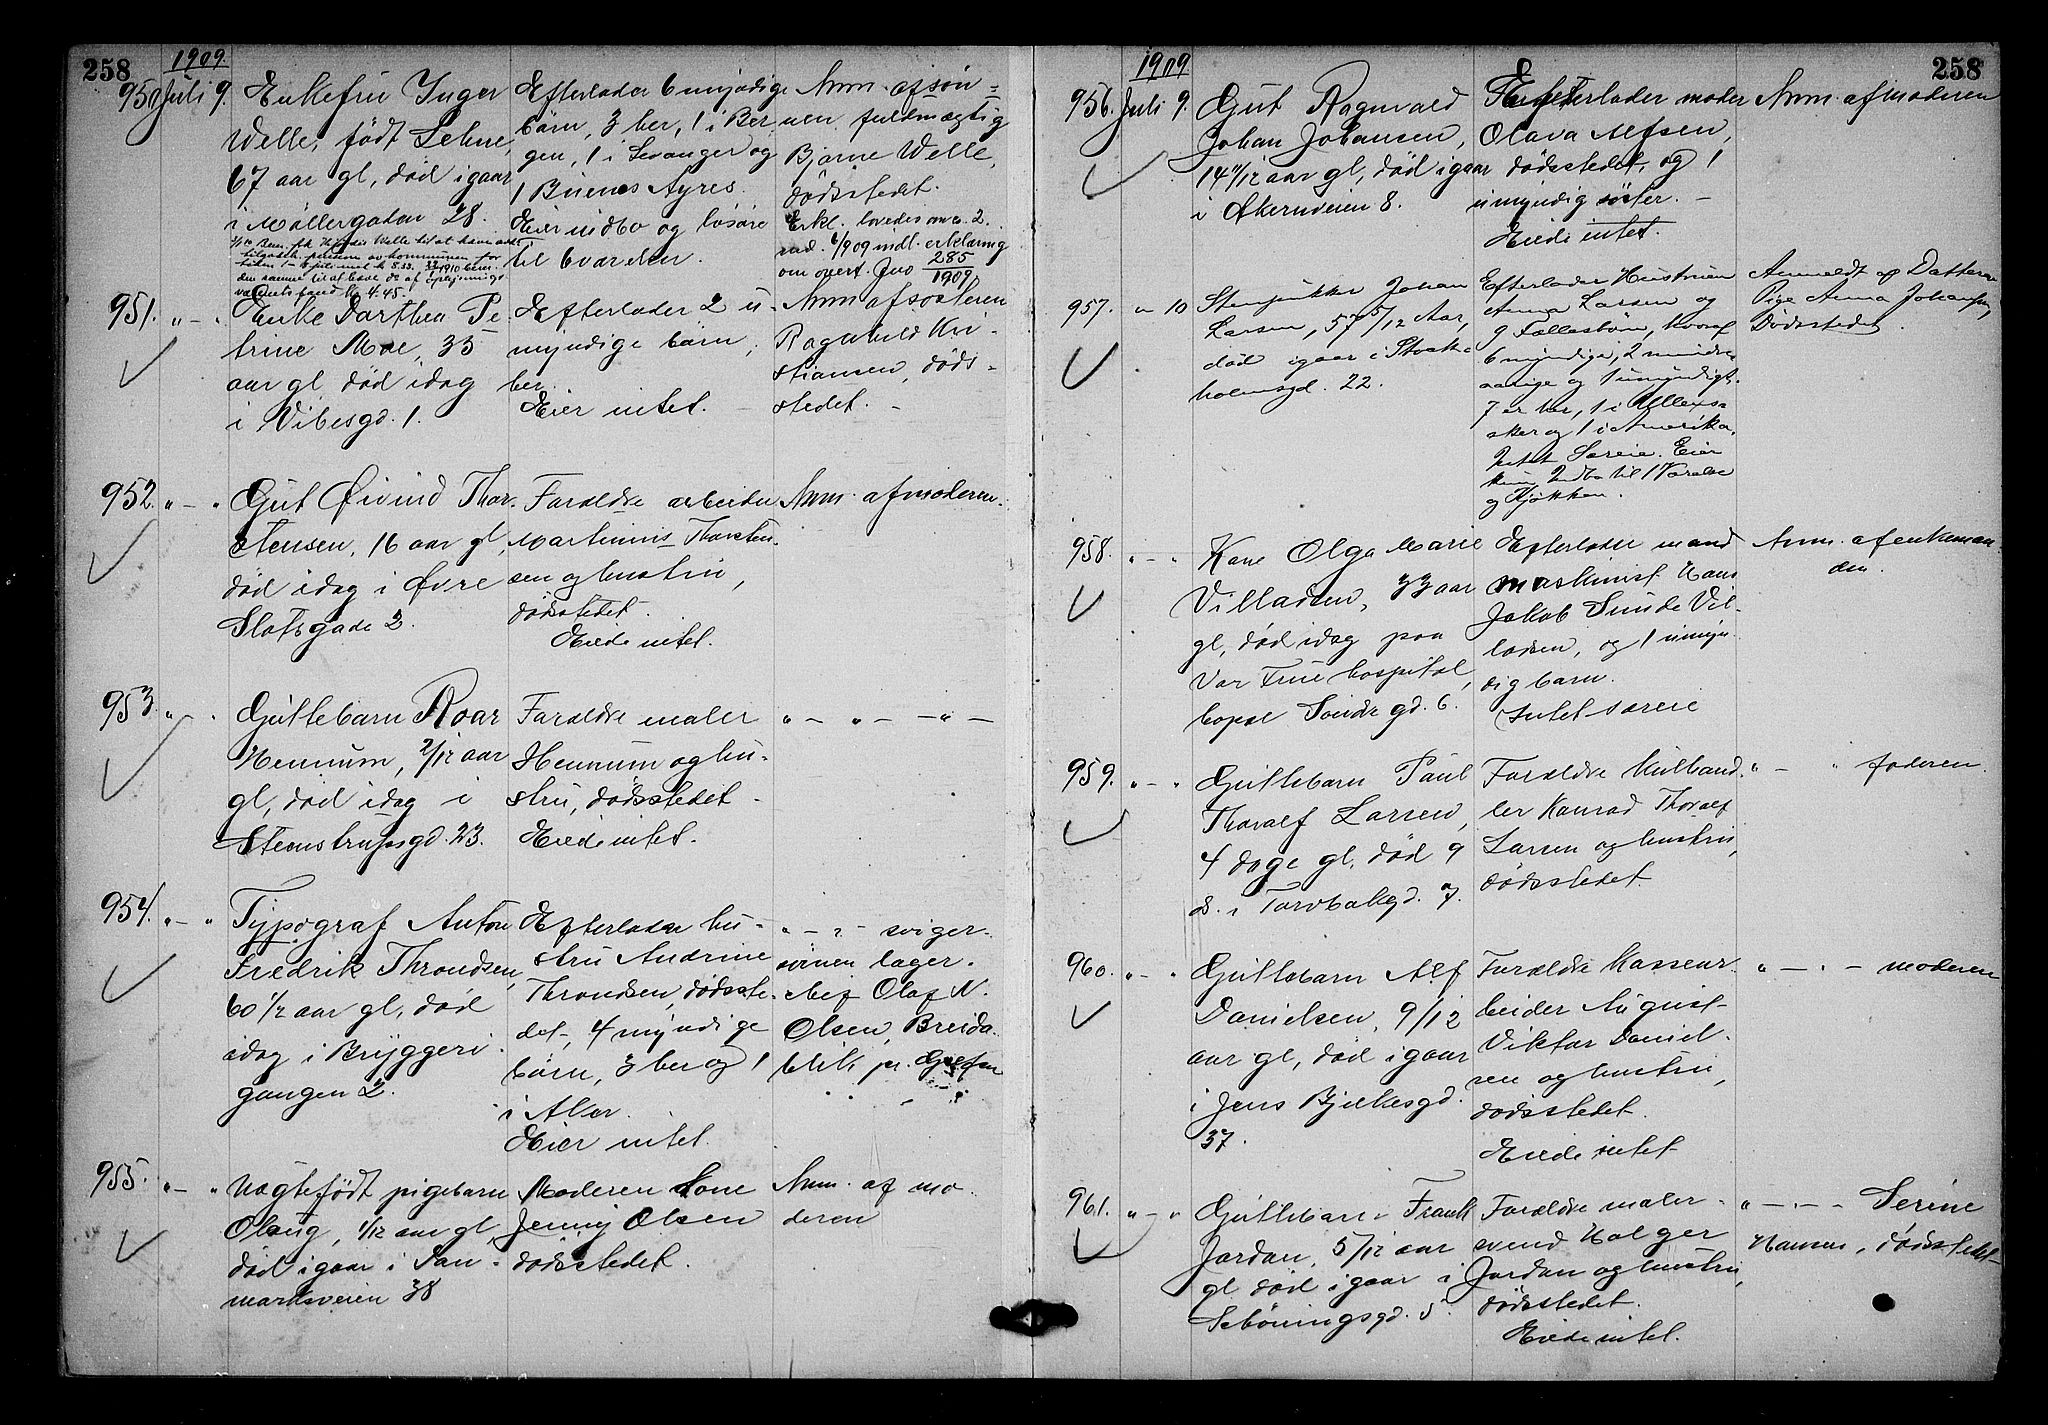 258
1909.
950 Juli 9. Enkefru Inger
Welle, født Lehne,
67 aar gl, død igaar
i Møllergaden 28.
Efterlader 6 myndige
børn, 3 her, 1 i Ber
gen, 1 i Levanger og
1 Buenos Ayres.
Eier indbo og løsøre
til 6 værelser.
Anm. af søn
nen fuldmægtig
Bjarne Welle,
dødsstedet.
Erkl. lovedes om c. 2
mdl. erklæring
om overt. Jno 285/1909
951. " - " Enke Dorthea Pe
trine Moe, 35
aar gl, død idag
i Vibesgd. 1.
Efterlader 2 u-
myndige børn,
her.
Eier intet.
Anm af søsteren
Ragnhild Kri-
stiansen, døds-
stedet. -
952. " - " Gut Øivind Thor-
stensen, 16 aar gl,
død idag i Øvre
Slotsgade 2.
Forældre arbeider
Martinius Thorsten-
sen og hustru,
dødsstedet.
Eiede intet.
Anm. af moderen.
953. " - " Guttebarn Roar
Hennum, 2/12 aar
gl, død idag i
Stenstrupsgd. 23.
Forældre maler
Hennum og hu-
stru, dødsstedet.
Eiede intet.
" - " - " -
954. " - " Typograf Anton
Fredrik Throndsen,
60 1/2 aar gl, død
idag i Bryggeri-
gangen 2.
Efterlader hu-
stru Andrine
Throndsen, dødsste-
det, 4 myndige
børn, 3 her og 1
i Aker.
Eier intet.
" - " - sviger-
sønnen lager-
chef Olaf N.
Olsen, Breida-
blik pr. Grefsen
955. " - " Uægtefødt pigebarn
Olaug, 1/12 aar gl,
død igaar i Dan-
marksveien 38
Moderen Lone
Jenny Olsen
dødsstedet.
Anm. af mo-
deren
258
1909
956. Juli 9. Gut Ragnvald
Johan Johansen,
14 11/12 aar gl, død igaar
i Akersveien 8.
Efterlader moder
Olava Alfsen,
dødsstedet, og 1
umyndig søster. -
Eiede intet.
Anm. af moderen
957. " 10 Stenpukker Johan
Larsen, 57 5/12 Aar,
død igaar i Stock-
holmsgd. 22.
Efterlader Hustruen
Anna Larsen og
9 Fællesbørn, hvoraf
6 myndige, 2 mindre-
aarige og 1 umyndigt.
7 er her, 1 i Ullens-
aker og 1 i Amerika.
Intet Særeie. Eier
kun Indbo til 1 Værelse
og Kjøkken.
Anmeldt af Datteren
Pige Anna Johansen,
Dødsstedet.
958. " - " Kone Olga Marie
Villadsen, 33 aar
gl, død idag paa
Vor Frue hospital,
bopæl Søndre gd. 6.
Efterlader mand
maskinist Hans
Jakob Sunde Vil-
ladsen, og 1 umyn-
dig barn.
Intet særeie
Anm. af enkeman-
den.
959. " - " Guttebarn Paul
Thoralf Larsen,
4 dage gl, død 9
ds. i Torvbakgd. 7.
Forældre kulhand-
ler Konrad Thoralf
Larsen og hustru,
dødsstedet.
" - " faderen.
960. " - " Guttebarn Alf
Danielsen, 9/12
aar gl, død igaar
i Jens Bjelkesgd.
37.
Forældre Kassear-
beider August
Viktor Daniel-
sen og hustru,
dødsstedet.
Eiede intet
" - " - moderen
961. " - " Guttebarn Frank
Jordan, 5/12 aar
gl død igaar i
Schøningsgd. 5.
Forældre maler-
svend Holger
Jordan og hustru,
dødsstedet.
Eiede intet.
" - " - Serine
Hansen, dødsstedet